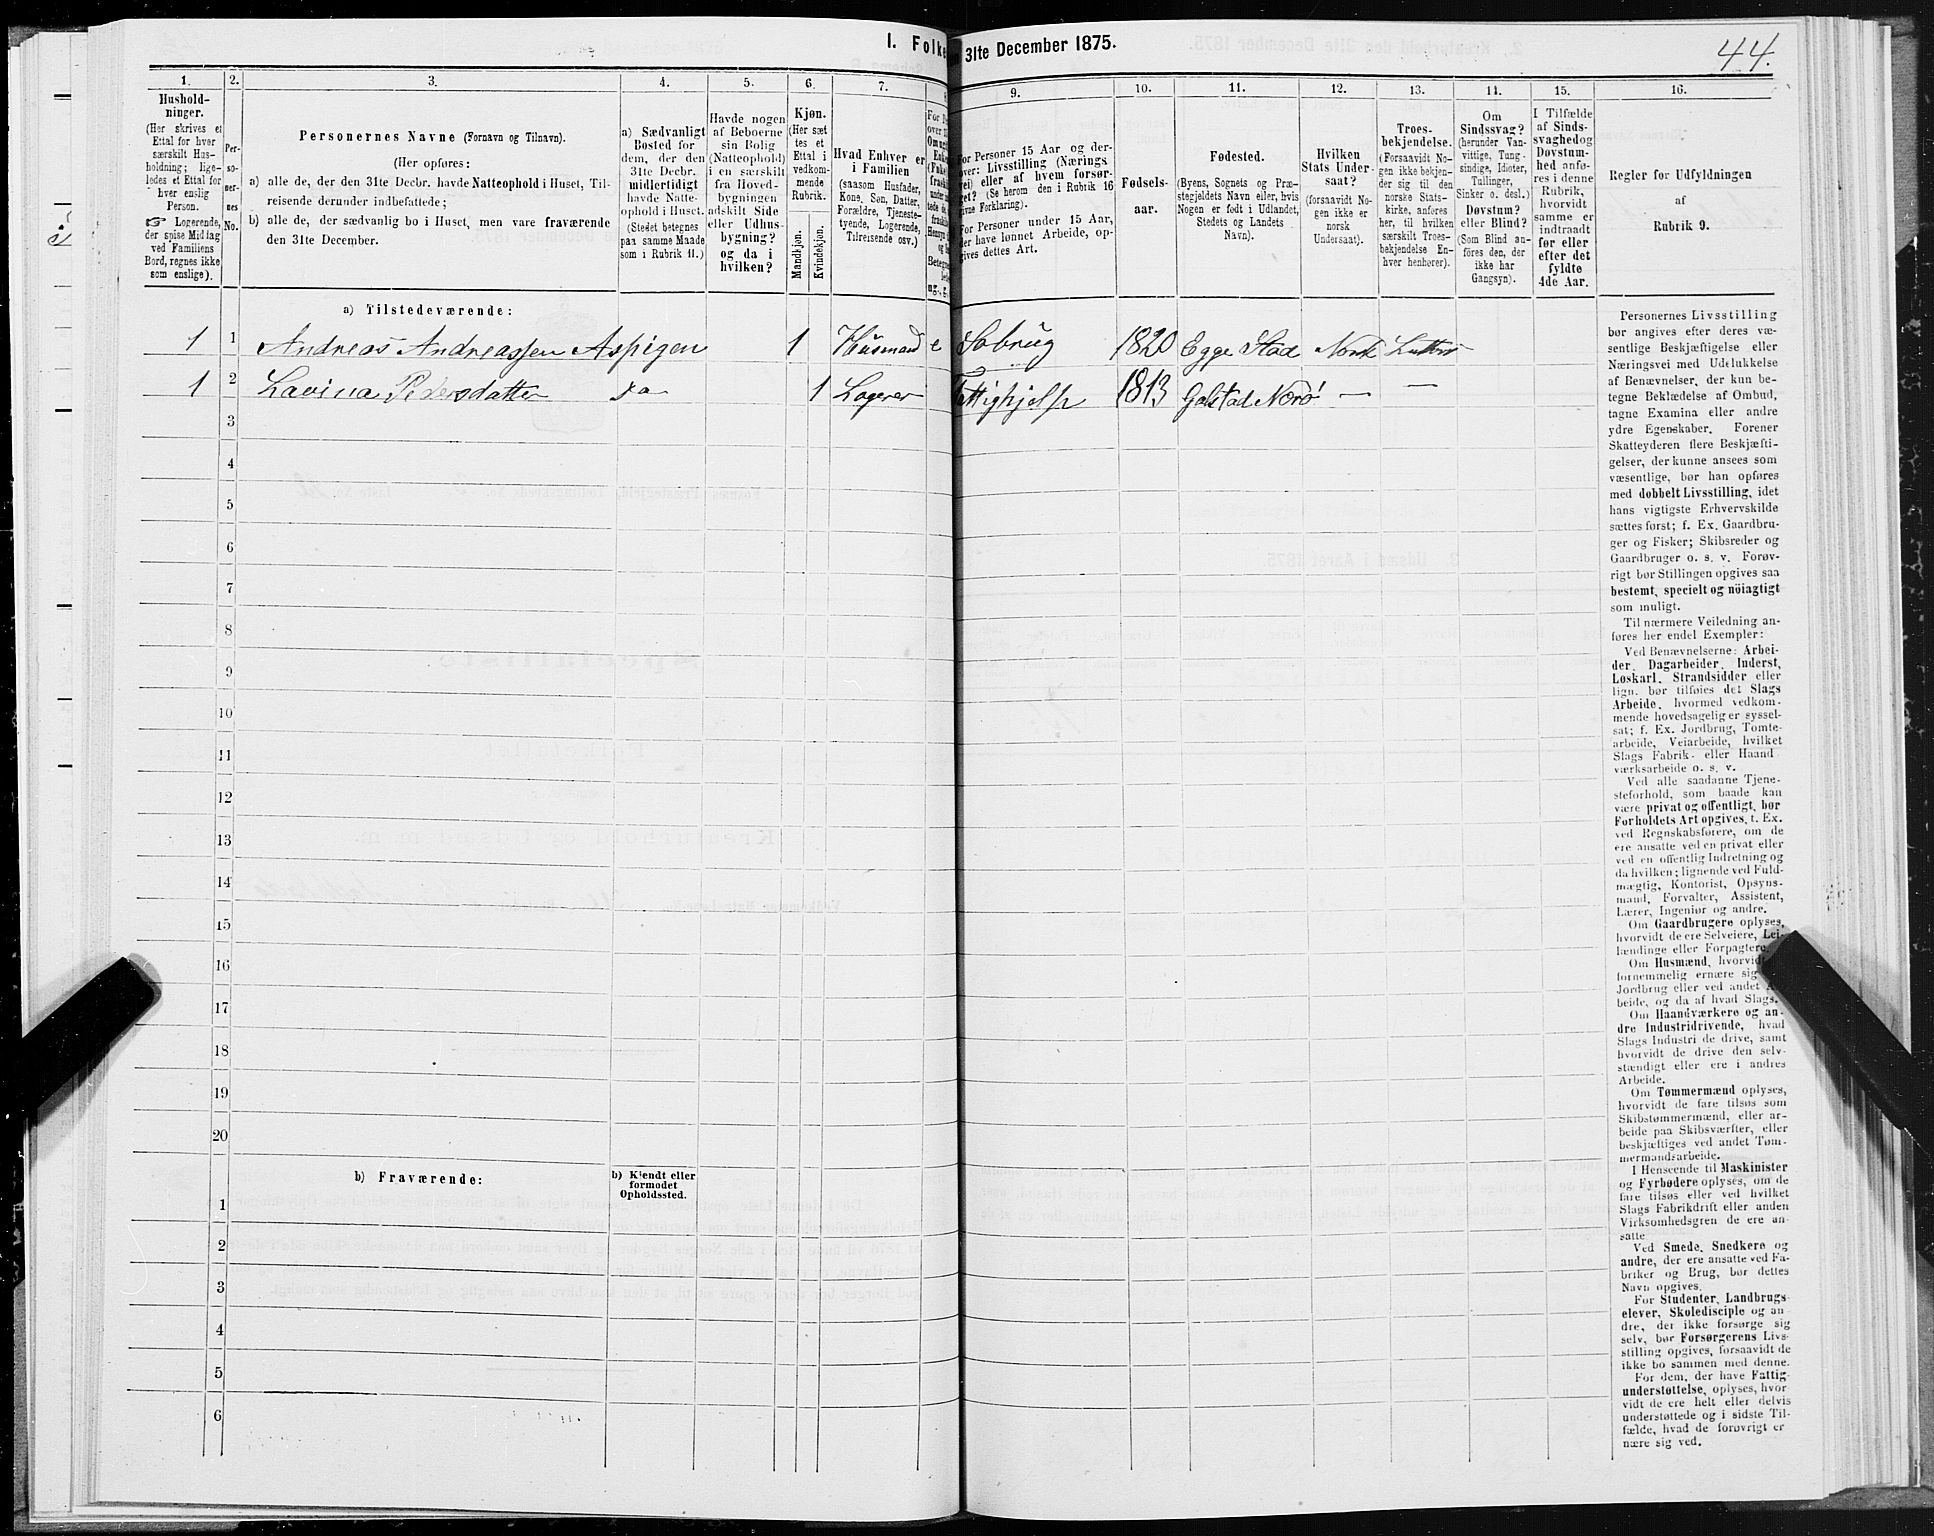 I. Folke
n 31te December 1875.
44.
1.
2.
3.
4.
5.
6.
7.
9.
10.
11.
12.
13.
14.
15.
16.
Hushold-
ninger.
(Her skrives et
Ettal for hver
særskilt Hus-
holdning; lige-
ledes et Ettal for
hver enslig
Person.
☞ Logerende,
der spise Middag
ved Familiens
Bord, regnes ikke
som enslige).
Per-
so-
ner-
nes
No.
Personernes Navne (Fornavn og Tilnavn).
(Her opføres:
a) alle de, der den 31te Decbr. havde Natteophold i Huset, Til-
reisende derunder indbefattede;
b) alle de, der sædvanlig bo i Huset, men vare fraværende
den 31te December.
a) Sædvanligt
Bosted for
dem, der den
31te Decbr.
midlertidigt
havde Natte-
ophold i Huset.
(Stedet betegnes
paa samme Maade
som i Rubrik 11.)
Havde nogen
af Beboerne
sin Bolig
(Natteophold)
i en særskilt
fra Hoved-
bygningen
adskilt Side
eller Udhus-
bygning?
og da i
hvilken?
Kjøn.
(Her sæt
tes et
Ettal i
vedkom-
mende
Rubrik.
Mandkjøn.
Kvindekjøn.
Hvad Enhver er
i Familien
(saasom Husfader,
Kone, Søn, Datter,
Forældre, Tjeneste-
tyende, Logerende,
Tilreisende osv.)
ug., g.
For Personer 15 Aar og der-
over: Livsstilling (Nærings
vei) eller af hvem forsør-
get? (Se herom den i Rubrik 16
givne Forklaring).
For Personer under 15 Aar,
der have lønnet Arbeide, op-
gives dettes Art.
Fødsels-
aar.
Fødested.
(Byens, Sognets og Præ-
stegjeldets Navn eller, hvis
Nogen er født i Udlandet,
Stedets og Landets
Navn).
Hvilken
Stats Under-
saat?
(forsaavidt No-
gen ikke er
norsk
Undersaat).
Troes-
bekjendelse.
(Forsaavidt No-
gen ikke bekjen-
der sig til den
norske Stats-
kirke, anføres
her, til hvilken
særskilt Troes-
bekjendelse En-
hver henhører).
Om
Sindssvag?
(herunder Van-
vittige, Tung-
sindige, Idioter,
Tullinger,
Sinker o. desl.)
Døvstum?
eller Blind?
(Som Blind an-
føres den, der
ikke har
Gangsyn).
I Tilfælde
af Sinds-
svaghed og
Døvstum-
hed anfø-
res i denne
Rubrik,
hvorvidt
samme er
indtraadt
før eller
efter det
fyldte
4de Aar.
Regler for Udfyldningen
af
Rubrik 9.
a) Tilstedeværende:
1 1 Andreas Andreassen Aspigen 1 Husmand e Jobrug 1820 Egge Stod Norsk
1 2 Lavina Pedersdatter 1 Logerer Fattighjelp 1813 Galstad Nærø — —
3
4
5
6
7
8
9
10
11
12
13
14
15
16
17
18
19
20
b) Fraværende:
b) Kjendt eller
formodet
Opholdssted.
1
2
3
4
5
6
Personernes Livsstilling
bør angives efter deres væ-
sentlige Beskjæftigelse eller
Næringsvei med Udelukkelse
af Benævnelser, der kun be-
tegne Beklædelse af Ombud,
tagne Examina eller andre
ydre Egenskaber. Forener
Skatteyderen flere Beskjæfti-
gelser, der kunne ansees som
væsentlige, bør han opføres
med dobbelt Livsstilling, idet
hans vigtigste Erhvervskilde
sættes først; f. Ex. Gaardbru-
ger og Fisker; Skibsreder og
Gaardbruger o. s. v. Forøv-
rigt bør Stillingen opgives saa
bestemt, specielt og nöiagtigt
som muligt.
Til nærmere Veiledning an-
føres her endel Exempler:
Ved Benævnelserne: Arbei-
der, Dagarbeider, Inderst,
Løskarl, Strandsidder eller
lign. bør tilføies det Slags
Arbeide, hvormed vedkom-
mende hovedsagelig er syssel-
sat; f. Ex. Jordbrug, Tomte-
arbeide, Veiarbeide, hvilket
Slags Fabrik- eller Haand
værksarbeide o. s. v.
Ved alle saadanne Tjene-
steforhold, som baade kan
være privat og offentligt, bør
Forholdets Art opgives, t. Ex.
ved Regnskabsførere, om de
ere ansatte ved en privat eller
ved en offentlig Indretning og
da hvilken; lignende ved Fuld-
mægtig, Kontorist, Opsyns-
mand, Forvalter, Assistent,
Lærer, Ingeniør og andre.
Om Gaardbrugere oplyses,
hvorvidt de ere Selveiere, Lei-
lændinge eller Forpagtere.
Om Husmænd, hvorvidt
fornemmelig ernære sig
Jordbrug eller ved andet A
beide, og da af hvad Slags.
Om Haandværkere og an-
dre Industridrivende, hvad
Slags Industri de drive, samt
hvorvidt de drive den selv-
stændigt eller ere i andres
Arbeide.
Om Tømmermænd oplyses,
hvorvidt de fare tilsøs som
Skibstømmermænd, eller ar-
beide paa Skibsværfter, eller
beskjæftiges ved andet Tøm-
mermandsarbeide.
I Henseende til Maskinister
og Fyrbødere oplyses, om de
fare tilsøs eller ved hvilket
Slags Fabrikdrift eller anden
Virksomhedsgren de ere an-
satte
Ved Smede, Snedkere og
andre, der ere ansatte ved Fa-
briker og Brug, bør dettes
Navn opgives.
For Studenter, Landbrugs
elever, Skoledisciple og an-
dre, der ikke forsørge sig
selv, bør Forsørgerens Livs-
stilling opgives, forsaavidt de
ikke bo sammen med denne.
For dem, der have Fattig
understøttelse, oplyses, hvor-
vidt de ere helt eller delvis
understøttede og i sidste Til-
fælde, hvad de forøvrigt er
nære sig ved.